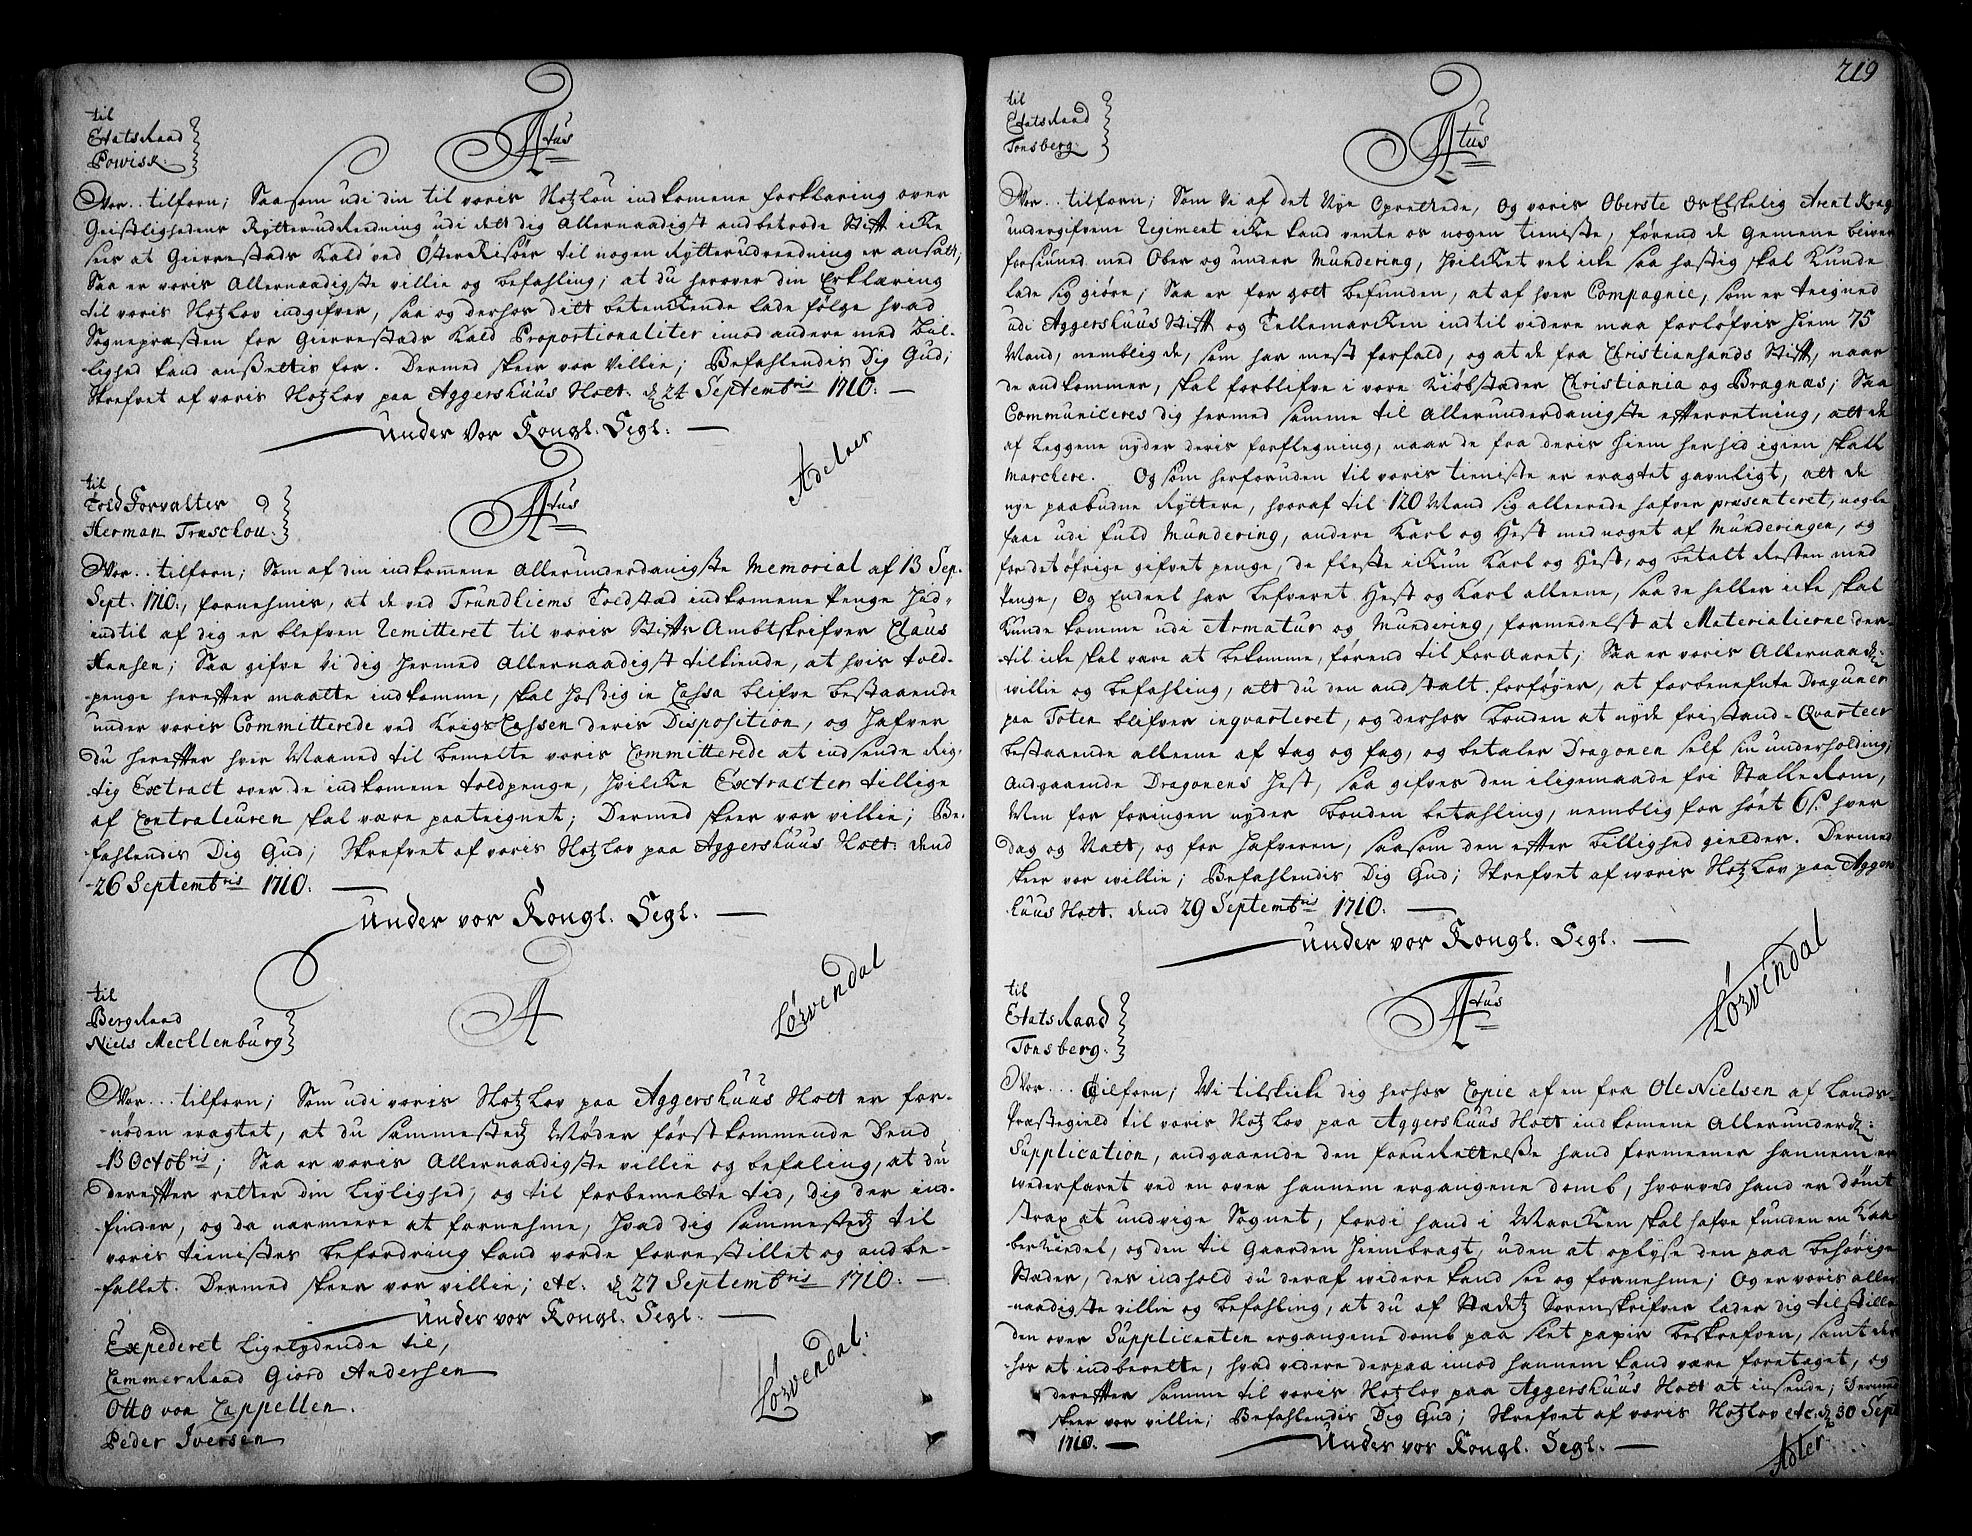 til
Etats Raad
Powisk.
Atus
Vor.. tilforn; Saasom udi din til voris Slotzlou indkomene forklaring over
Geistlighedens Rytterudreedning udi dett dig Allernaadigst anbetrode Stifft icke
sees at Gierrestads Kald ved Øster Risöer til nogen Rytterudreedning er ansatt,
Saa er voris Allernaadigste villie og befahling; at du herover din Erklæring
til voris Slotzlov indgifver, saa og derhos ditt betenckende lade følge hvad
Sognepræsten for Gierrestads Kald Proportionaliter imod andere med bil-
-lighed kand ansettis for. Dermed skeer vor Villie; Befahlendis Dig Gud;
Skrefvet af voris Slotzlov paa Aggershuus Slott: d 24 Septembris 1710. —
Under Vor Kongl. Segl. —
Adelaer
til
Told Forvalter
Herman Træschou.
Atus
Vor.. tilforn; Som af din indkommene Allerunderdanigste Memorial af 13 Sep.
Sept. 1710., fornehmis, at de ved Trundhiems Toldstæd indkomene Penge hid-
indtil af dig er blefven Remitteret til voris Stiffts Ambtskrifver Claus
Hansen; Saa gifve Vi dig hermed Allernaadigst tilkiende, at hvis told-
-penge hereffter maatte indkomme, skal hos dig in Cassa blifve bestaaende
under voris Committerede ved KrigsCassen deris Disposition, og hafver
du hereffter hver Maaned til bemelte voris Committerede at indsende Rig-
tig Extract over de indkomene toldpenge, hvilcke Extracter tillige
af Contraleuren skal være paateignet; Dermed skeer vor villie; Be-
fahlendis Dig Gud; Skrefvet af voris Slotzlov paa Aggershuus Slott: dend
26 Septembris 1710. —
Under vor Kongl. Segl. —
Løvendal
til
Berg Raad
Niels Mechlenburg
A
Vor... tilforn; Som udi voris Slotzlov paa Aggershuus Slott er for-
-nöden eragtet, at du sammestedz Møder förstkommende Dend
13 Octobris; Saa er voris Allernaadigste villie og befaling, at du
dereffter retter din Leylighed, og til forbemelte tid, dig der ind-
-finder, og da nærmeere at fornehme, hvad dig sammestedz til
voris tienistes befordring kand vorde forrestillet og andbe-
-fallet. Dermed skeer vor villie; etc. d 27 Septembris 1710. —
Under vor Kongl. Segl. —
Expederet Ligelydende til,
Cammer Raad Giord Andersen
Otto von Cappellen.
Peder Iversen
Løvendal.
219
til
Etats Raad
Tonsberg.
Atus
Vor.. tilforn; Som Vi af det Nye Oprettede, og voris Oberste Os Elskelig Arent Krag
undergifvene Regiment icke kand vente os nogen tieniste, förend de Gemene blifver
forsiuned med Ober og under Mundering, hvilcket vel icke saa hastig skal kunde
lade sig giöre; Saa er for gott befunden, at af hver Compagnie, som er Aneigned
udi Aggershuus Stifft og Tellemarcken indtil videre maa forløfvis hiem 75
Mand, nemblig de, som har mest forfald, og at de fra Christiansands Stifft, naar
de andkommer, skal forblifve i vore Kiöbstæder Christiania og Bragnæs; Saa
Communiceres dig hermed samme til Allerunderdanigste effterretning, att de
af Leggene nyder deris forflegning, naar de fra deris hiem herhid igien skall
marchere. Og som herforuden til voris tieniste er eragtet gavnligt, att de
nye paabudne Ryttere, hvoraf til 120 Mand sig alleerede hafver præsenteret, nogle
faae udi fuld Mundering, andere Karl og Hest med noget af Munderingen, og
for det öfrige gifvet penge, de fleste ickun Karl og Hest, og betalt Resten med
Penge, Og Endeel har lefveret Hest og Karl alleene, saa de heller icke skal
kunde komme udi Armatur og Mundering, formedelst at Materialierne der-
-til icke skal være at bekomme, förend til forAaret; Saa er voris Allernaad:
willie og befahling, att du den andstalt forföyer, at forbenefnte Draguner
paa Toten blifver inqvarteret, og derhos bonden at nyde fristand-Qvarteer
bestaaende alleene af tag og fag, og betaler Dragonen self sin underholding;
Andgaaende Dragonens Hest, saa gifves den iligemaade fri Stalle Rom,
Men for foringen nyder bonden betahling, nemblig for höet 6 s. hver
dag og Natt, og for hafveren, saasom den effter billighed gielder. Dermed
skeer vor willie; Befahlendis Dig Gud; Skrefvet af woris Slotzlov paa Aggers
huus Slott. dend 29 Septembris 1710. —
Under vor Kongl. Segl. —
Løvendal
til
Etats Raad
Tonsberg.
Atus
Vor.... tilforn; Vi tilskicke dig herhos Copie af en fra Ole Nielsen af Lands-
Præstegield til voris Slotzlov paa Aggershuus Slott indkomene Allerunderd:
Supplication, andgaaende den foruRettelse hand formeener hannem er
wederfaret ved en over hannem ergangene domb, hvorved hand er dömt
strax at undvige Sognet, fordi hand i Marcken skal hafve funden en Kaa-
berkiedel, og den til Gaarden hiembragt, uden at oplyse den paa behörige
Stæder, des indhold du deraf widere kand see og fornehme; Og er voris aller
-naadigste villie og befahling, at du af Stædetz Sorenskrifver lader dig tilstille
den over Supplicanten ergangene domb paa slet papir beskrefven, samt der
-hos at indberette, hvad videre derpaa imod hannem kand være foretaget, og
dereffter samme til voris Slotzlov paa Aggershuus Slott at insende; Dermed
skeer vor villie; Befahlendis Dig Gud; Skrefvet af voris Slotzlov etc. d 30 Sept
1710. —
Under vor Kongl. Segl. —
Adler